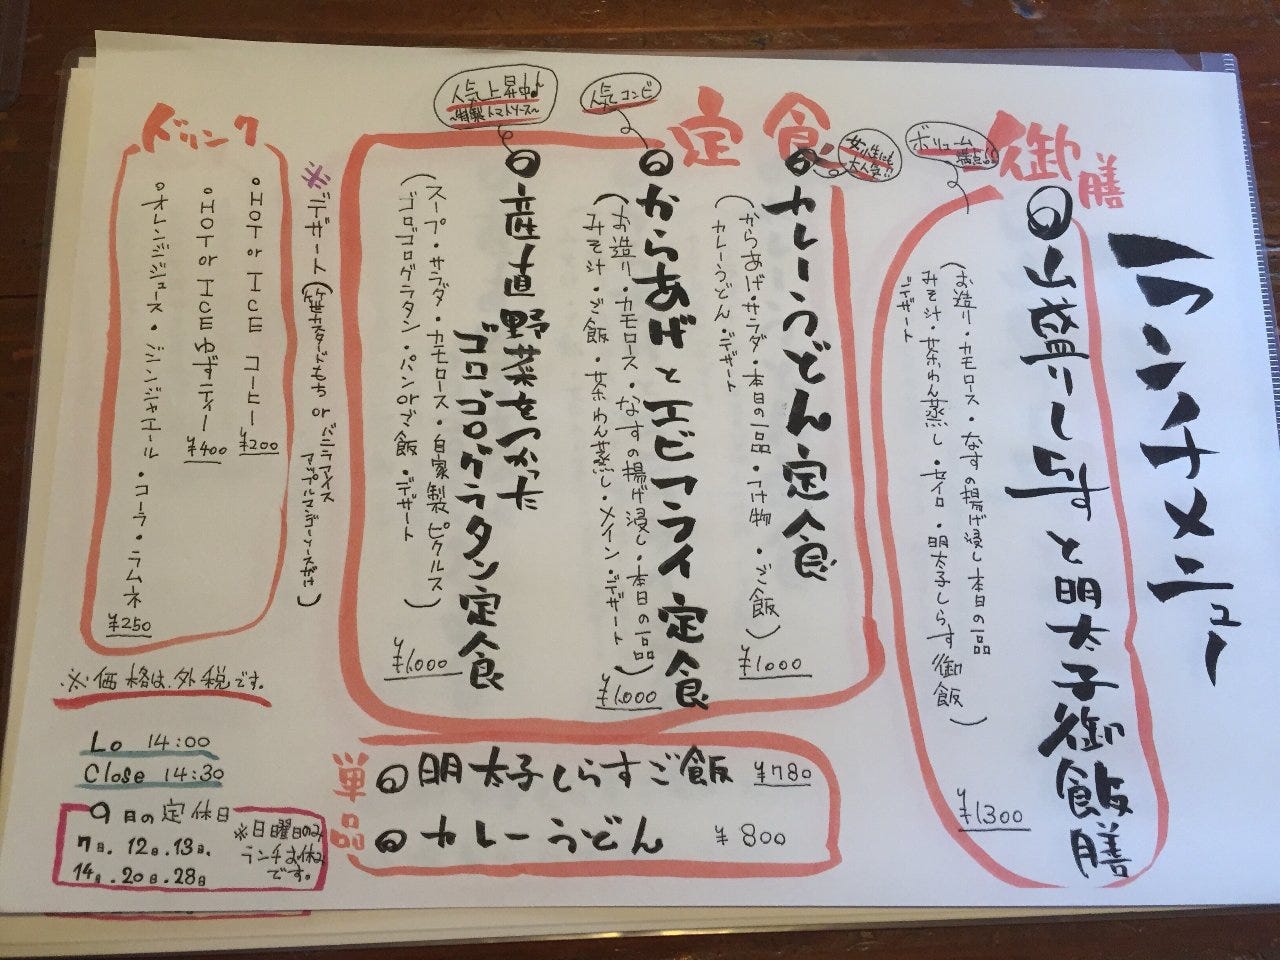 ランチメニュー
御膳
ボリューム
満点!!
山盛りしらすと明太子御飯膳
(お造り・カモロース・なすの揚げ浸し本日の一品
みそ汁・茶わん蒸し・セイロ・明太子しらす御飯)
デザート
¥1300
定食
女性にも
大人気!!
カレーうどん定食
(からあげ・サラダ・本日の一品・つけ物・ご飯)
カレーうどん・デザート
¥1,000
人気コンビ
からあげとエビフライ定食
(お造り・カモロース・なすの揚げ浸し・本日の一品)
みそ汁・ご飯・茶わん蒸し・メイン・デザート
¥1,000
人気上昇中♪
~特製トマトソース~
産直野菜をつかった
ゴロゴログラタン定食
(スープ・サラダ・カモロース・自家製ピクルス)
ゴロゴログラタン・パンorご飯・デザート
¥1,000
※デザート(笹カスタードもち or バニラアイス
アップルマンゴーソースがけ)
ドリンク
•HOT or ICE コーヒー
¥200
•HOT or ICE ゆずティー
¥400
•オレンジジュース・ジンジャエール・コーラ・ラムネ
¥250
単品
明太子しらすご飯 ¥780
カレーうどん ¥800
※価格は、外税です。
Lo 14:00
Close 14:30
9月の定休日
7日.12日.13日.
14日.20日.28日
※日曜日のみ
ランチお休み
です。